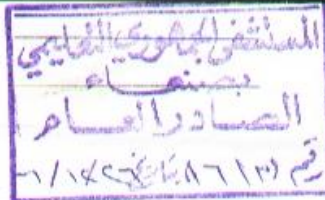 المستشفى الجمهوري التعليمي
بصنعاء
الصادر العام
رقم